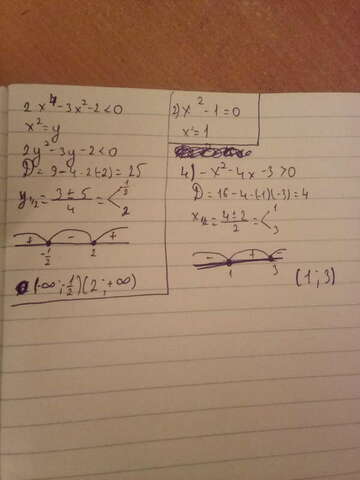 2x⁴-3x²-2<0
x²=y
2y²-3y-2<0
D=9-4·2(-2)=25
y₁/₂=(3±5)/4=< 1/2
2
+ - +
-1/2 2
(-∞;1/2)(2;+∞)
2) x²-1=0
x=1
4) -x²-4x-3>0
D=16-4·(-1)(-3)=4
x₁/₂=(4±2)/2=< 1
3
- + -
1 3
(1;3)